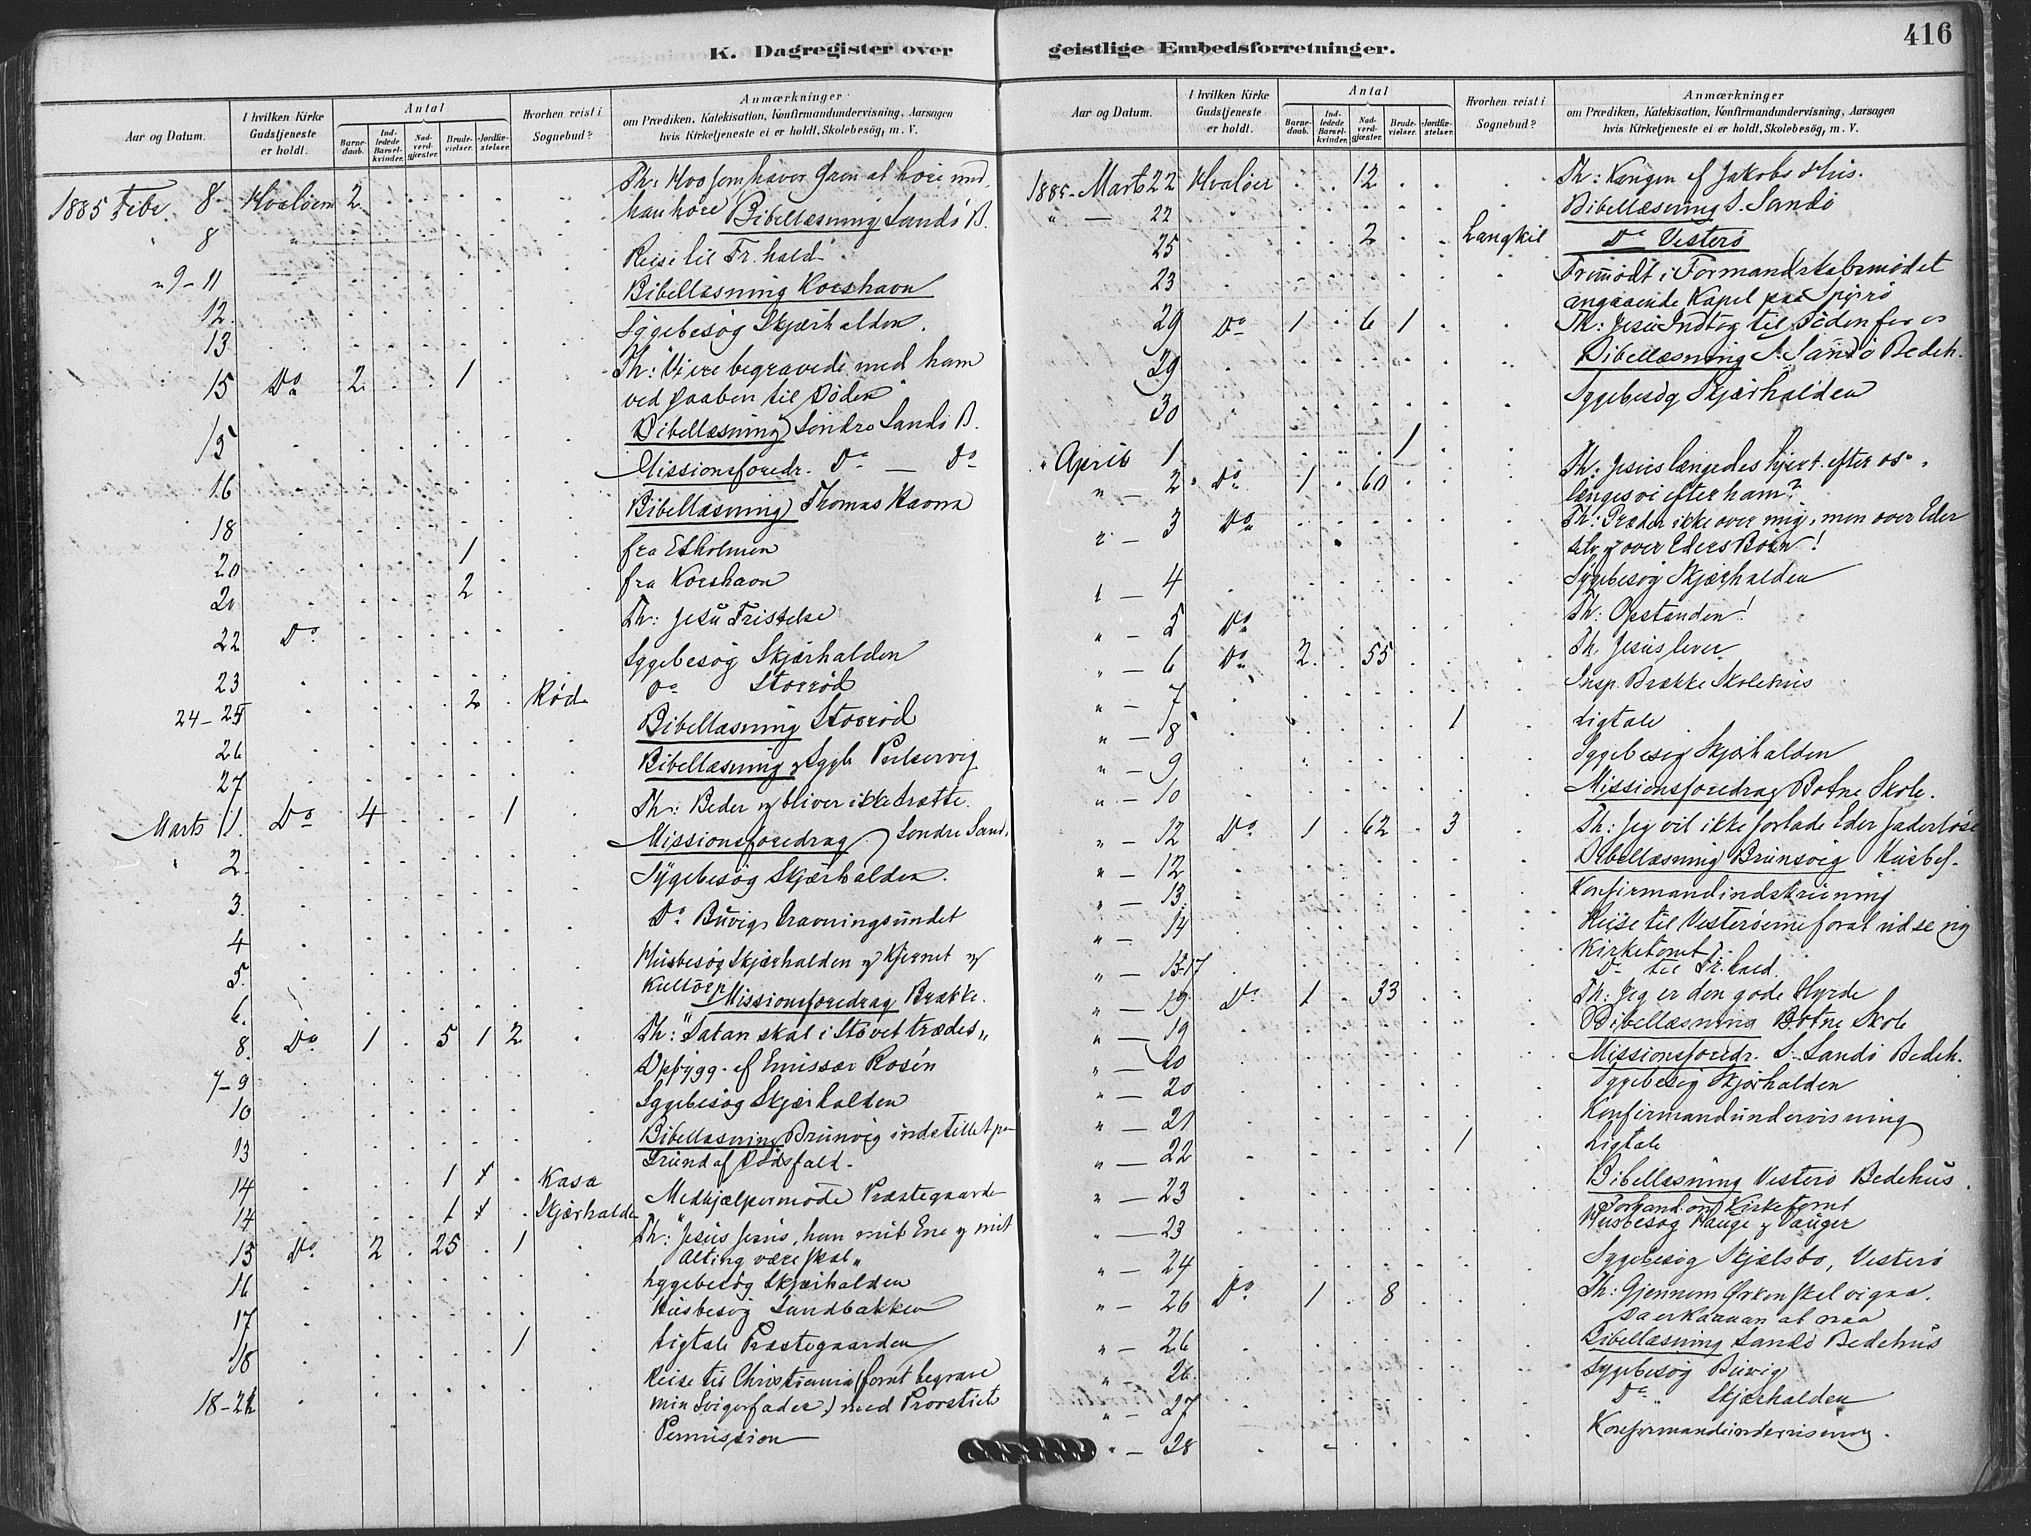 416
K. Dagregister over geistlige Embedsforretninger.
Aar og Datum. I hvilken Kirke Gudstjeneste er holdt. Antal Barnedaab. Indledede Barselkvinder. Nadverdgjæster. Brudevielser. Jordfæstelser. Hvorhen reist i Sognebud? Anmærkninger om Prædiken, Katekisation, Konfirmandundervisning, Aarsagen hvis Kirketjeneste ei er holdt, Skolebesög, m. V.
1885 Febr 8 Hvaløerne 2 Th: Hvo som haver Øren at høre med,
han høre
8 " Bibellæsning Sandö B.
" 9-11 Reise til Fr.hald
12. Bibellæsning Korshavn
13 Sygebesög Skjærhalden.
15 Do 2 1 Th: Vi ere begravede med ham
ved Daaben til Døden
15 Bibellæsning Søndre Sandö B.
16 Missionsforedr. Do — Do
18 Bibellæsning Thomas Havn
20 1 fra Esholmen
20 2 fra Korshavn
22 Do Th: Jesu Fristelse
23 Sygebesög Skjærhalden
24-25 2 Rød Do Storrød
26 Bibellæsning Storrød
27 Bibellæsning og Sygb
Marts 1. Do 4 1 Th: Beder og bliver ikke trætte.
" 2. Missionsforedrag Søndre Sand.
3. Sygebesög Skjærhalden.
4 Do Buvig Gravningsundet
5. Husbesög Skjærhalden og Kjernet og
6. Missionsforedrag Brække.
8. Do 1 5 1 2 Th: "Satan skal i Støvet trædes"
7-9 Opbygg. af Emissær Rosén
10 Sygebesög Skjærhalden
13 Bibellæsning Brunvig indstillet pa
Grund af Dødsfald.
14 1 Kasa Medhjælpermöde Præstegaarde
14 1 Skjærhalde
15 Do 2 25 1 Th: "Jesus Jesus, han mit Ene og mit
Alting være skal"
16 Sygebesög Skjærhalden
17 Husbesög Sandbakken
18 1 Ligtale Præstegaarden
18-21 Reise til Christiania (forat begrave
min Svigerfader) med Provstiets
Permission
Aar og Datum. I hvilken Kirke Gudstjeneste er holdt. Antal Barnedaab. Indledede Barselkvinder. Nadverdgjæster. Brudevielser. Jordfæstelser. Hvorhen reist i Sognebud? Anmærkninger om Prædiken, Katekisation, Konfirmandundervisning, Aarsagen hvis Kirketjeneste ei er holdt, Skolebesög, m. V.
1885 Marts 22 Hvaløer 12 Th: Kongen af Jakobs Hus.
" — 22 Bibellæsning S. Sandö
25 2 Langkil Do Vesterö
23 Fremmödt i Formandskabsmödet
angaaende Kapel paa Spjærö
29 Do 1 6 1 Th: Jesu Indtog til Döden for os
29 Bibellæsning S. Sandö Bedeh.
30 Sygebesög Skjærhalden
" April 1 1
" — 2 Do 1 60 Th: Jesus længedes hjert. efter os.
længes vi efter ham?
" — 3 Do Th: Græder ikke over mig, men over Eder
selv og over Eders Börn!
" — 4 Sygebesög Skjærhalden
" — 5 Do Th: Opstanden!
" — 6 Do 2 55 Th. Jesus lever
" — 7 Insp. Brække Skolehus
" — 8 1 Ligtale
" — 9 Sygebesög Skjærhalden
" — 10 Missionsforedrag Botne Skole.
" — 12 Do 1 62 3 Th: Jeg vil ikke forlade Eder faderløse
" — 12 Bibellæsning Brunsvig Husbes.
" — 13. Konfirmandindskrivning
" — 14 Reise til Vesteröerne forat udse ny
Kirketomt
" — 15-17 Do til Fr.hald.
" — 19 Do 1 33 Th: Jeg er den gode Hyrde
" — 19 Bibellæsning Botne Skole
" — 20 Missionsforedr. S. Sandö Bedeh.
" — 20 Sygebesög Skjærhalden
" — 21 Konfirmandundervisning
" — 22 1 Ligtale
" — 23 Bibellæsning Vesterö Bedehus.
Forhand om Kirketomt
" — 23 Husbesög Hauge og Bauger
" — 24 Sygebesög Skjælsbo, Vesterö
" — 26 Do 1 8 Th: Gjennem Ørken skal vi gaa.
Da er Kanaan at naa
" — 26 Bibellæsning Sandö Bedehus
" 26. Sygebesög Buvig
" — 27 Do " Skjærhalden
" — 28 Konfirmandundervisning.